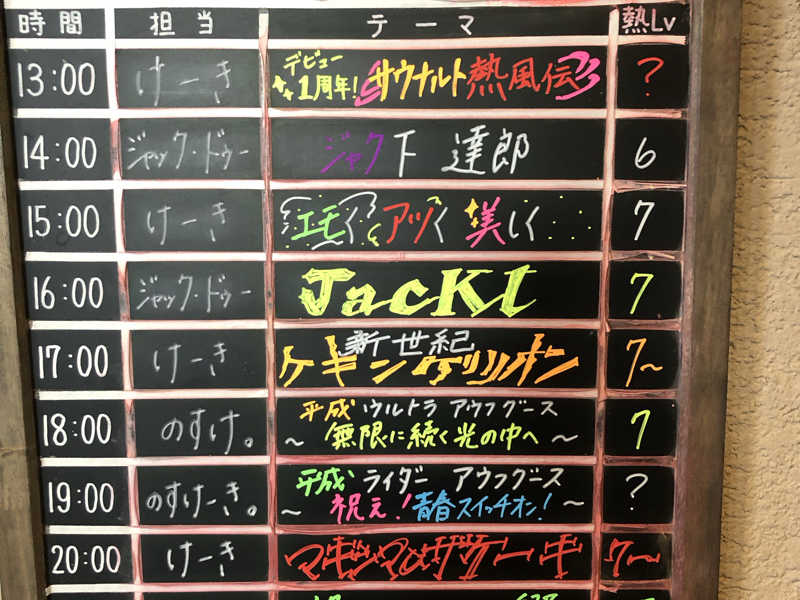 時間 担当 テーマ 熱Lv
13:00 けーき デビュー
1周年! サウナルト熱風伝 ?
14:00 ジャック・ドゥー ジャク下 達郎 6
15:00 けーき エモく アツく 美しく 7
16:00 ジャック・ドゥー JacKl 7
17:00 けーき 新世紀
ケキンゲリリオン 7〜
18:00 のすけ。 平成 ウルトラ アウフグース
〜 無限に続く光の中へ 〜 7
19:00 のすけーき。 平成 ライダー アウフグース
〜 祝え! 青春スイッチオン! 〜 ?
20:00 けーき マギマのサケーキ 7〜